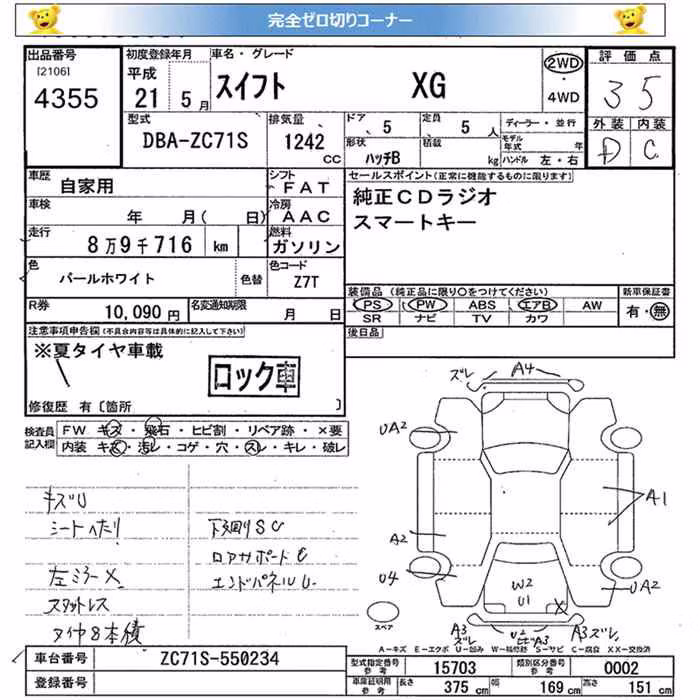 完全ゼロ切りコーナー
出品番号
[2106]
4355
初度登録年月
平成
21 5月
車名・グレード
スイフト XG
2WD
・
4WD
評価点
3 5
外装 内装
D C
型式
DBA-ZC71S
排気量
1242
CC
ドア 5
定員 5 人
形状
ハッチB
積載 kg
ディーラー・並行
モデル
年式 年
ハンドル 左・右
車歴
自家用
シフト
FAT
車検
年 月( 日)
冷房
AAC
走行
8万9千716 km
燃料
ガソリン
色
パールホワイト
色替
色コード
Z7T
R券
10,090円
名変通知期限
月 日
セールスポイント(正常に機能するものに限ります)
純正CDラジオ
スマートキー
装備品(純正品に限り○をつけてください)
PS PW ABS エアB AW
SR ナビ TV カワ
新車保証書
有・無
後日品
注意事項申告欄(不具合内容等は具体的に記入して下さい)
※夏タイヤ車載
ロック車
修復歴 有〔箇所 〕
検査員
記入欄
FW キズ・飛石・ヒビ割・リペア跡・×要
内装 キズ・汚レ・コゲ・穴・スレ・キレ・破レ
キズU
シートヘタリ
左ミラーX
スタットレス
タイヤ8本積
下廻りSC
ロアサポートC
エンドパネルU
ズレ A4
UA2
A1
A2
U4
UA2
W2
U1
X
A3
ズレ
U2
A3
A3
ズレ
スペア
A-キズ E-エクボ U-凹み W-補修跡 S-サビ C-腐食 XX-交換済
車台番号
ZC71S-550234
登録番号
型式指定番号
参考
15703
類別区分番号
参考
0002
車庫証明用
参考
長さ 375 cm 幅 169 cm 高さ 151 cm